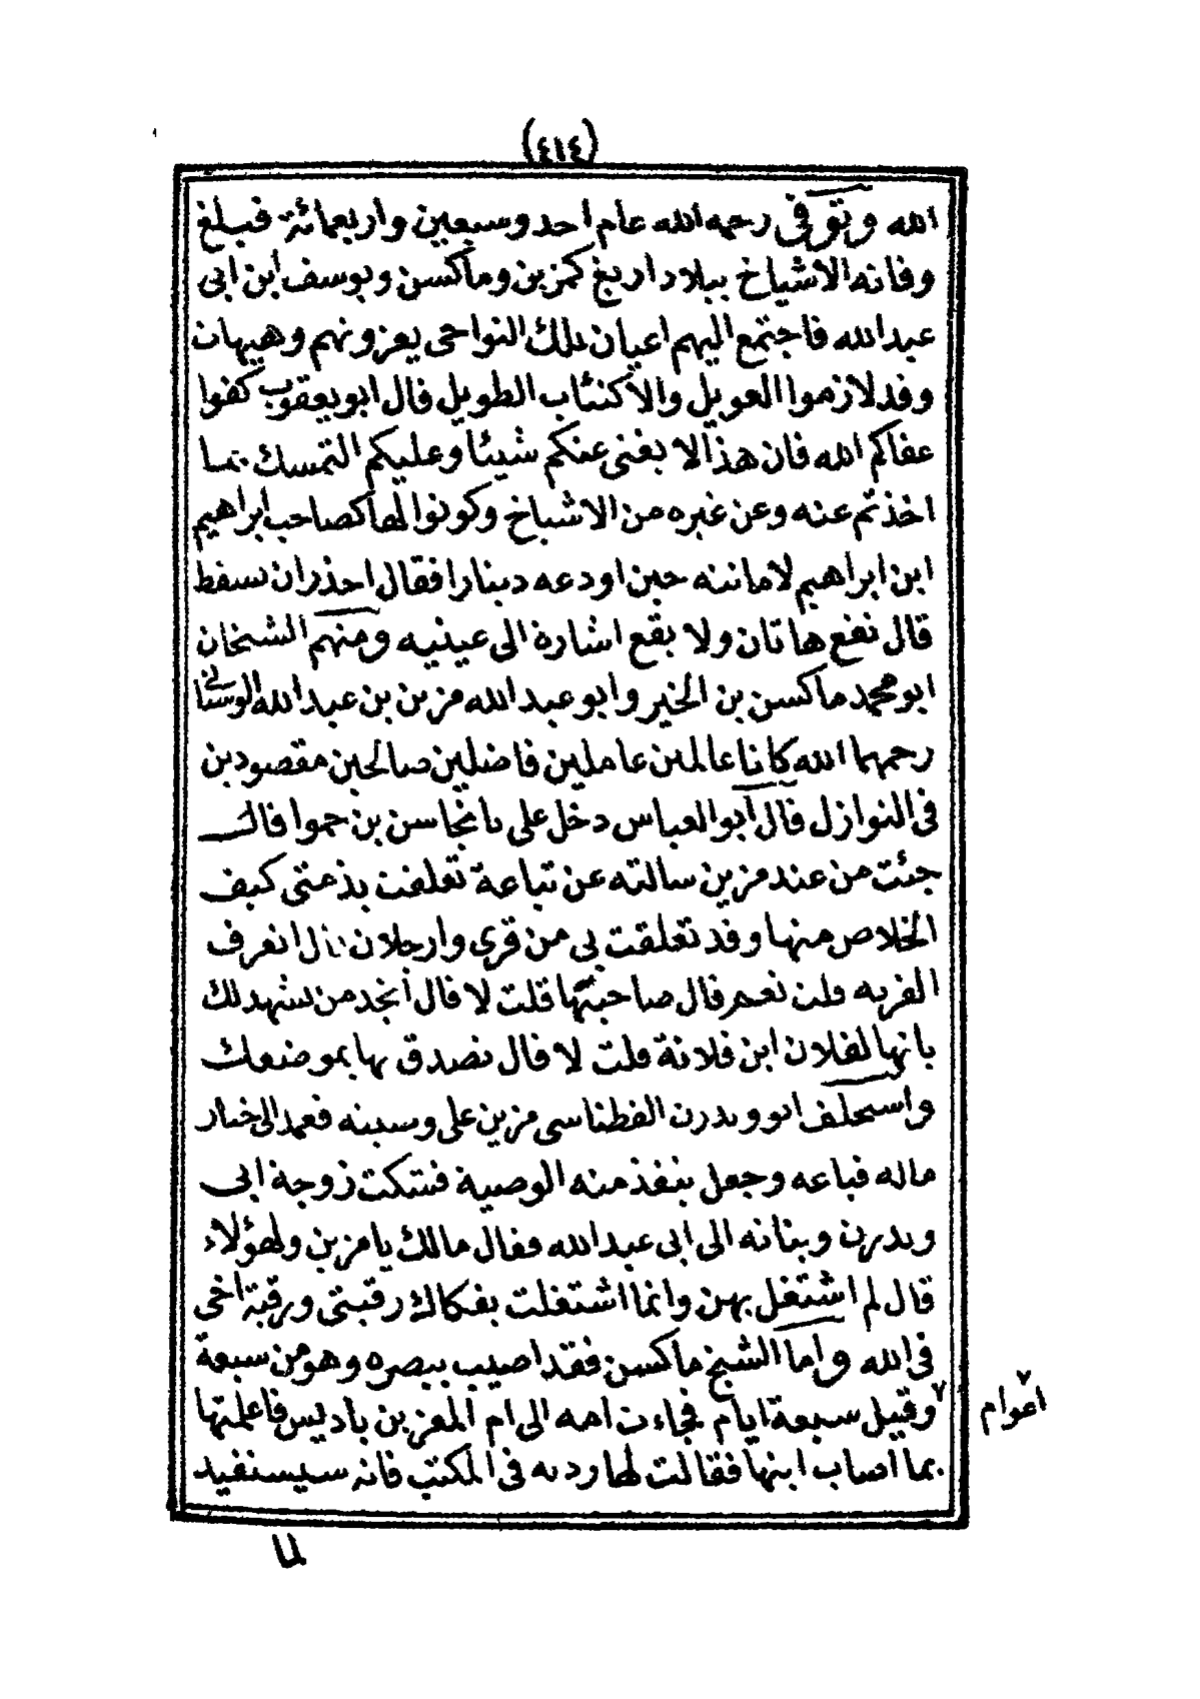 (٤١٤)
الله وتوفى رحمه الله عام احد وسبعين واربعمائة فبلغ
وفاته الاشياخ ببلاد اريغ كمزين وماكسن ويوسف ابن ابى
عبد الله فاجتمع اليهم اعيان تلك النواحى يعزونهم وهيهات
وقد لازموا العويل والاكتئاب الطويل قال ابو يعقوب كفوا
عفاكم الله فان هذا لا يغنى عنكم شيئا وعليكم التمسك بما
اخذتم عنه وعن غيره من الاشياخ وكونوا لها كصاحب ابراهيم
ابن ابراهيم لامانته حين اودعه دينارا فقال احذر ان تسقط
قال تقع هاتان ولا يقع اشارة الى عينيه ومنهم الشيخان
ابو محمد ماكسن بن الخير وابو عبد الله مزين بن عبد الله الوسيانى
رحمهما الله كانا عالمين عاملين فاضلين صالحين مقصودين
فى النوازل قال ابو العباس دخل على يا نجاسن بن حموا قال
جئت من عند مزين سالته عن تباعة تعلقت بذمتى كيف
الخلاص منها وقد تعلقت بى من قرى وارجلان قال اتعرف
القرية قلت نعم قال صاحبتها قلت لا قال أتجد من يشهد لك
بانها لفلان ابن فلانة قلت لا قال تصدق بها بموضعك
واستخلف ابو ويدرن الفطناسى مزين على وصيته فعمد الى خيار
ماله فباعه وجعل ينفذ منه الوصية فشكت زوجة ابى
ويدرن وبناته الى ابى عبد الله فقال مالك يا مزين ولهؤلاء
قال لم اشتغل بهن وانما اشتغلت بفكاك رقبتى ورقبة اخى
فى الله واما الشيخ ماكسن فقد اصيب ببصره وهو من سبعة
٧ وقيل سبعة ايام فجاءت امه الى ام المعز بن باديس فاعلمتها
بما اصاب ابنها فقالت لها رديه فى المكتب فانه سيستفيد
٧
اعوام
لما